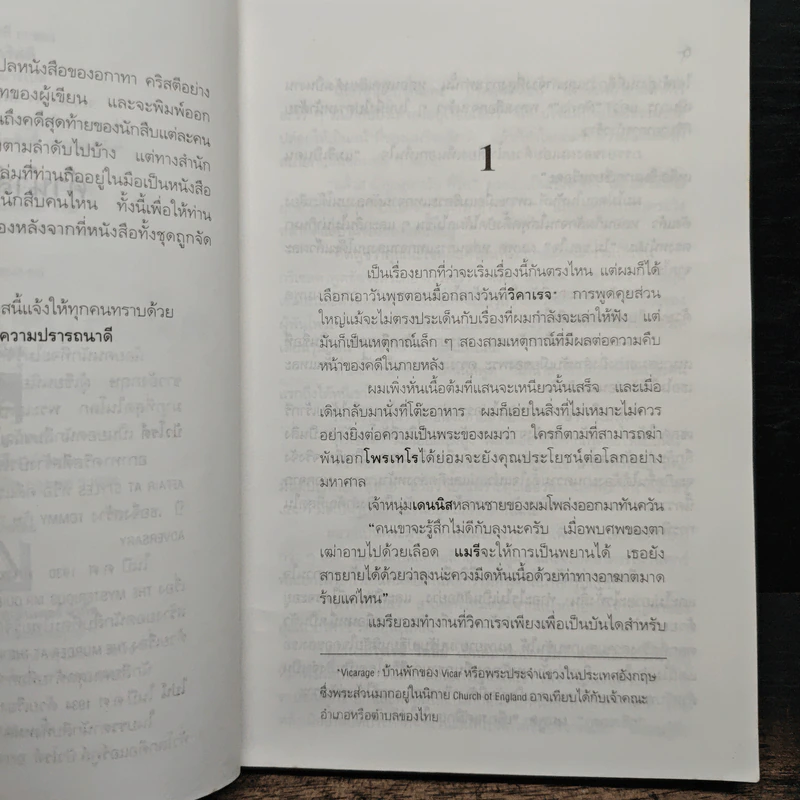 ปลหนังสือของอกาทา คริสตีอย่าง
ทของผู้เขียน และจะพิมพ์ออก
นถึงคดีสุดท้ายของนักสืบแต่ละคน
งตามลำดับไปบ้าง แต่ทางสำนัก
ล่มที่ท่านถืออยู่ในมือเป็นหนังสือ
นักสืบคนไหน ทั้งนี้เพื่อให้ท่าน
องหลังจากที่หนังสือทั้งชุดถูกจัด
สนี้แจ้งให้ทุกคนทราบด้วย
ความปรารถนาดี
1
เป็นเรื่องยากที่ว่าจะเริ่มเรื่องนี้กันตรงไหน แต่ผมก็ได้
เลือกเอาวันพุธตอนมื้อกลางวันที่วิคาเรจ* การพูดคุยส่วน
ใหญ่แม้จะไม่ตรงประเด็นกับเรื่องที่ผมกำลังจะเล่าให้ฟัง แต่
มันก็เป็นเหตุการณ์เล็ก ๆ สองสามเหตุการณ์ที่มีผลต่อความคืบ
หน้าของคดีในภายหลัง
ผมเพิ่งหั่นเนื้อต้มที่แสนจะเหนียวนั้นเสร็จ และเมื่อ
เดินกลับมานั่งที่โต๊ะอาหาร ผมก็เอ่ยในสิ่งที่ไม่เหมาะไม่ควร
อย่างยิ่งต่อความเป็นพระของผมว่า ใครก็ตามที่สามารถฆ่า
พันเอกโพรเทโรได้ย่อมจะยังคุณประโยชน์ต่อโลกอย่าง
มหาศาล
เจ้าหนุ่มเดนนิสหลานชายของผมโพล่งออกมาทันควัน
“คนเขาจะรู้สึกไม่ดีกับลุงนะครับ เมื่อพบศพของตา
เฒ่าอาบไปด้วยเลือด แมรีจะให้การเป็นพยานได้ เธอยัง
สาธยายได้ด้วยว่าลุงน่ะควงมีดหั่นเนื้อด้วยท่าทางอาฆาตมาด
ร้ายแค่ไหน”
แมรียอมทำงานที่วิคาเรจเพียงเพื่อเป็นบันไดสำหรับ
*Vicarage : บ้านพักของ Vicar หรือพระประจำแขวงในประเทศอังกฤษ
ซึ่งพระส่วนมากอยู่ในนิกาย Church of England อาจเทียบได้กับเจ้าคณะ
อำเภอหรือตำบลของไทย